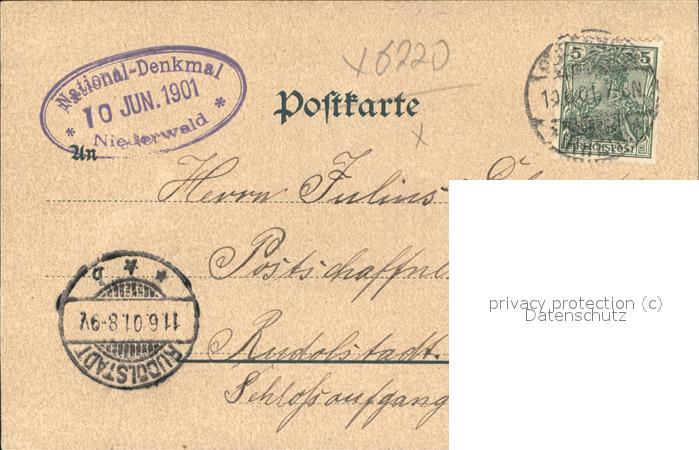 National-Denkmal
10 JUN. 1901
Niederwald
x 6220
Postkarte
x
5 5
REICHSPOST
An
Herrn Julius
Postschaffner
Rudolstadt.
Schloßaufgang
* * b
11.6.01.8-9V.
RUDOLSTADT
privacy protection (c)
Datenschutz